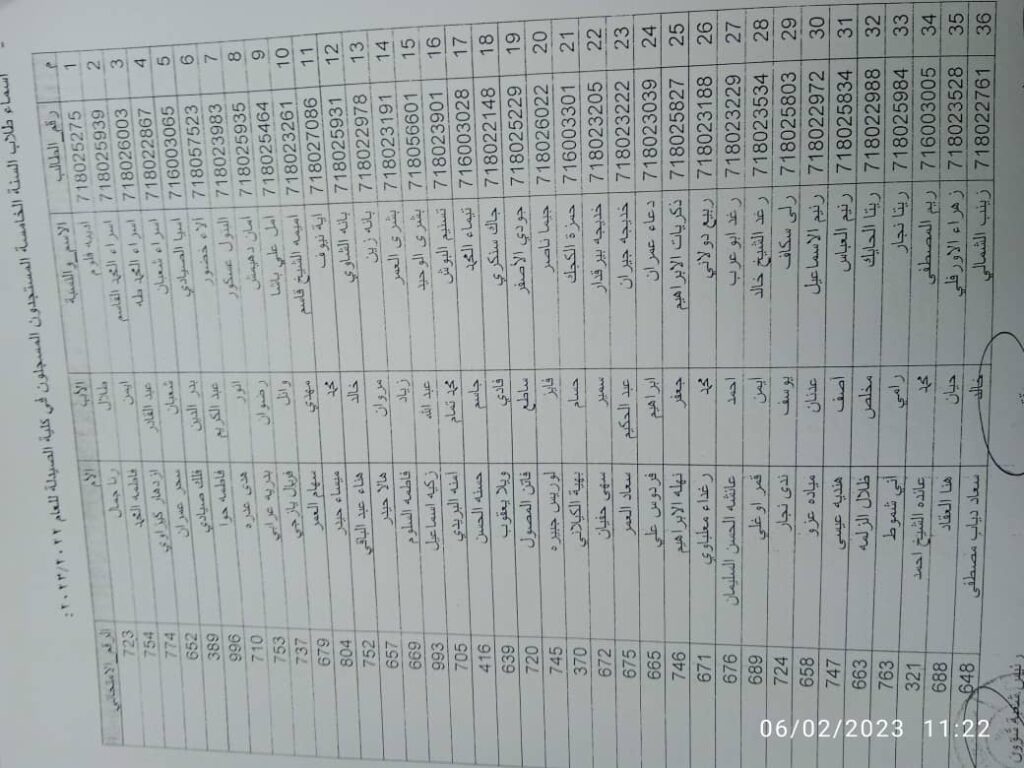 اسماء طلاب السنة الخامسة المستجدون المسجلون في كلية الصيدلة للعام ٢٠٢٣/٢٠٢٢:
م رقم الطالب الاسم والنسبة الأب الأم الرقم الامتحاني
1 718025275 اديبه فلزم طلال رنا جمال 723
2 718025939 اسراء المحمد القاسم ايمن فاطمه المحمد 754
3 718026003 اسراء المحمد طه عبد القادر ازدهار كيزاوي 774
4 718022867 اسراء شعبان شعبان سحر عمران 652
5 716003065 اسيا الصيادي بدر الدين فلك صيادي 389
6 718057523 الاء خضور عبد الكريم فاطمه حوا 996
7 718023983 البتول عسكور انور هدى عذره 710
8 718025935 امان دهيمش رضوان بدريه عرابي 753
9 718025464 امل علي باشا وائل فريال يازجي 737
10 718023261 اميمه الشيخ قاسم مهدي سهام العمر 679
11 718027086 اية نيوف محمد ميساء حيدر 804
12 718025931 بانه الشاوي خالد هناء عبد الباقي 752
13 718022978 بانه زين مروان هالا حيدر 657
14 718023191 بشرى العسر زياد فاطمه السلوم 669
15 718056601 بشرى الوحيد عبد الله زكيه اسماعيل 993
16 718023901 تسنيم البوش محمد تمام امنه البريدي 705
17 716003028 تيماء المحمد جاسم حسنه الحسن 416
18 718022148 جاك سنكري فادي ويلا يعقوب 639
19 718025229 جودي الاصفر ساطع فاتن المصول 720
20 718026022 جيما ناصر فايز لوريس جنيبره 745
21 716003301 حمزة الكجك حسام بهية الكيلاني 370
22 718023205 خديجه بيرقدار سمير سهى حفيان 672
23 718023222 خديجه جيران عبد الحكيم سعاد العمر 675
24 718023039 دعاء عمران ابراهيم فردوس علي 665
25 718025827 ذكريات الابراهيم جعفر نهله الابراهيم 746
26 718023188 ربيع دولاتي محمد رغداء معطياوي 671
27 718023229 رغد ابو عرب احمد عائشه الحسن السليمان 676
28 718023534 رغد الشيخ خالد ايمن قمر اوغلي 689
29 718025803 رلى سكاف يوسف ندى نجار 724
30 718022972 رنيم الاسماعيل عدنان مياده عزو 658
31 718025834 رنيم العباس اصف هنديه عيسى 747
32 718022988 ريتا الحايك مخلص ظلال الزلمه 663
33 718025984 ريتا نجار رامي اني شموط 763
34 716003005 ريم المصطفى محمد عائده الشيخ احمد 321
35 718023528 زهراء الاورفلي حيان هنا العقاد 688
36 718022761 زينب الشمالي خالد سعاد دياب مصطفى 648
06/02/2023 11:22